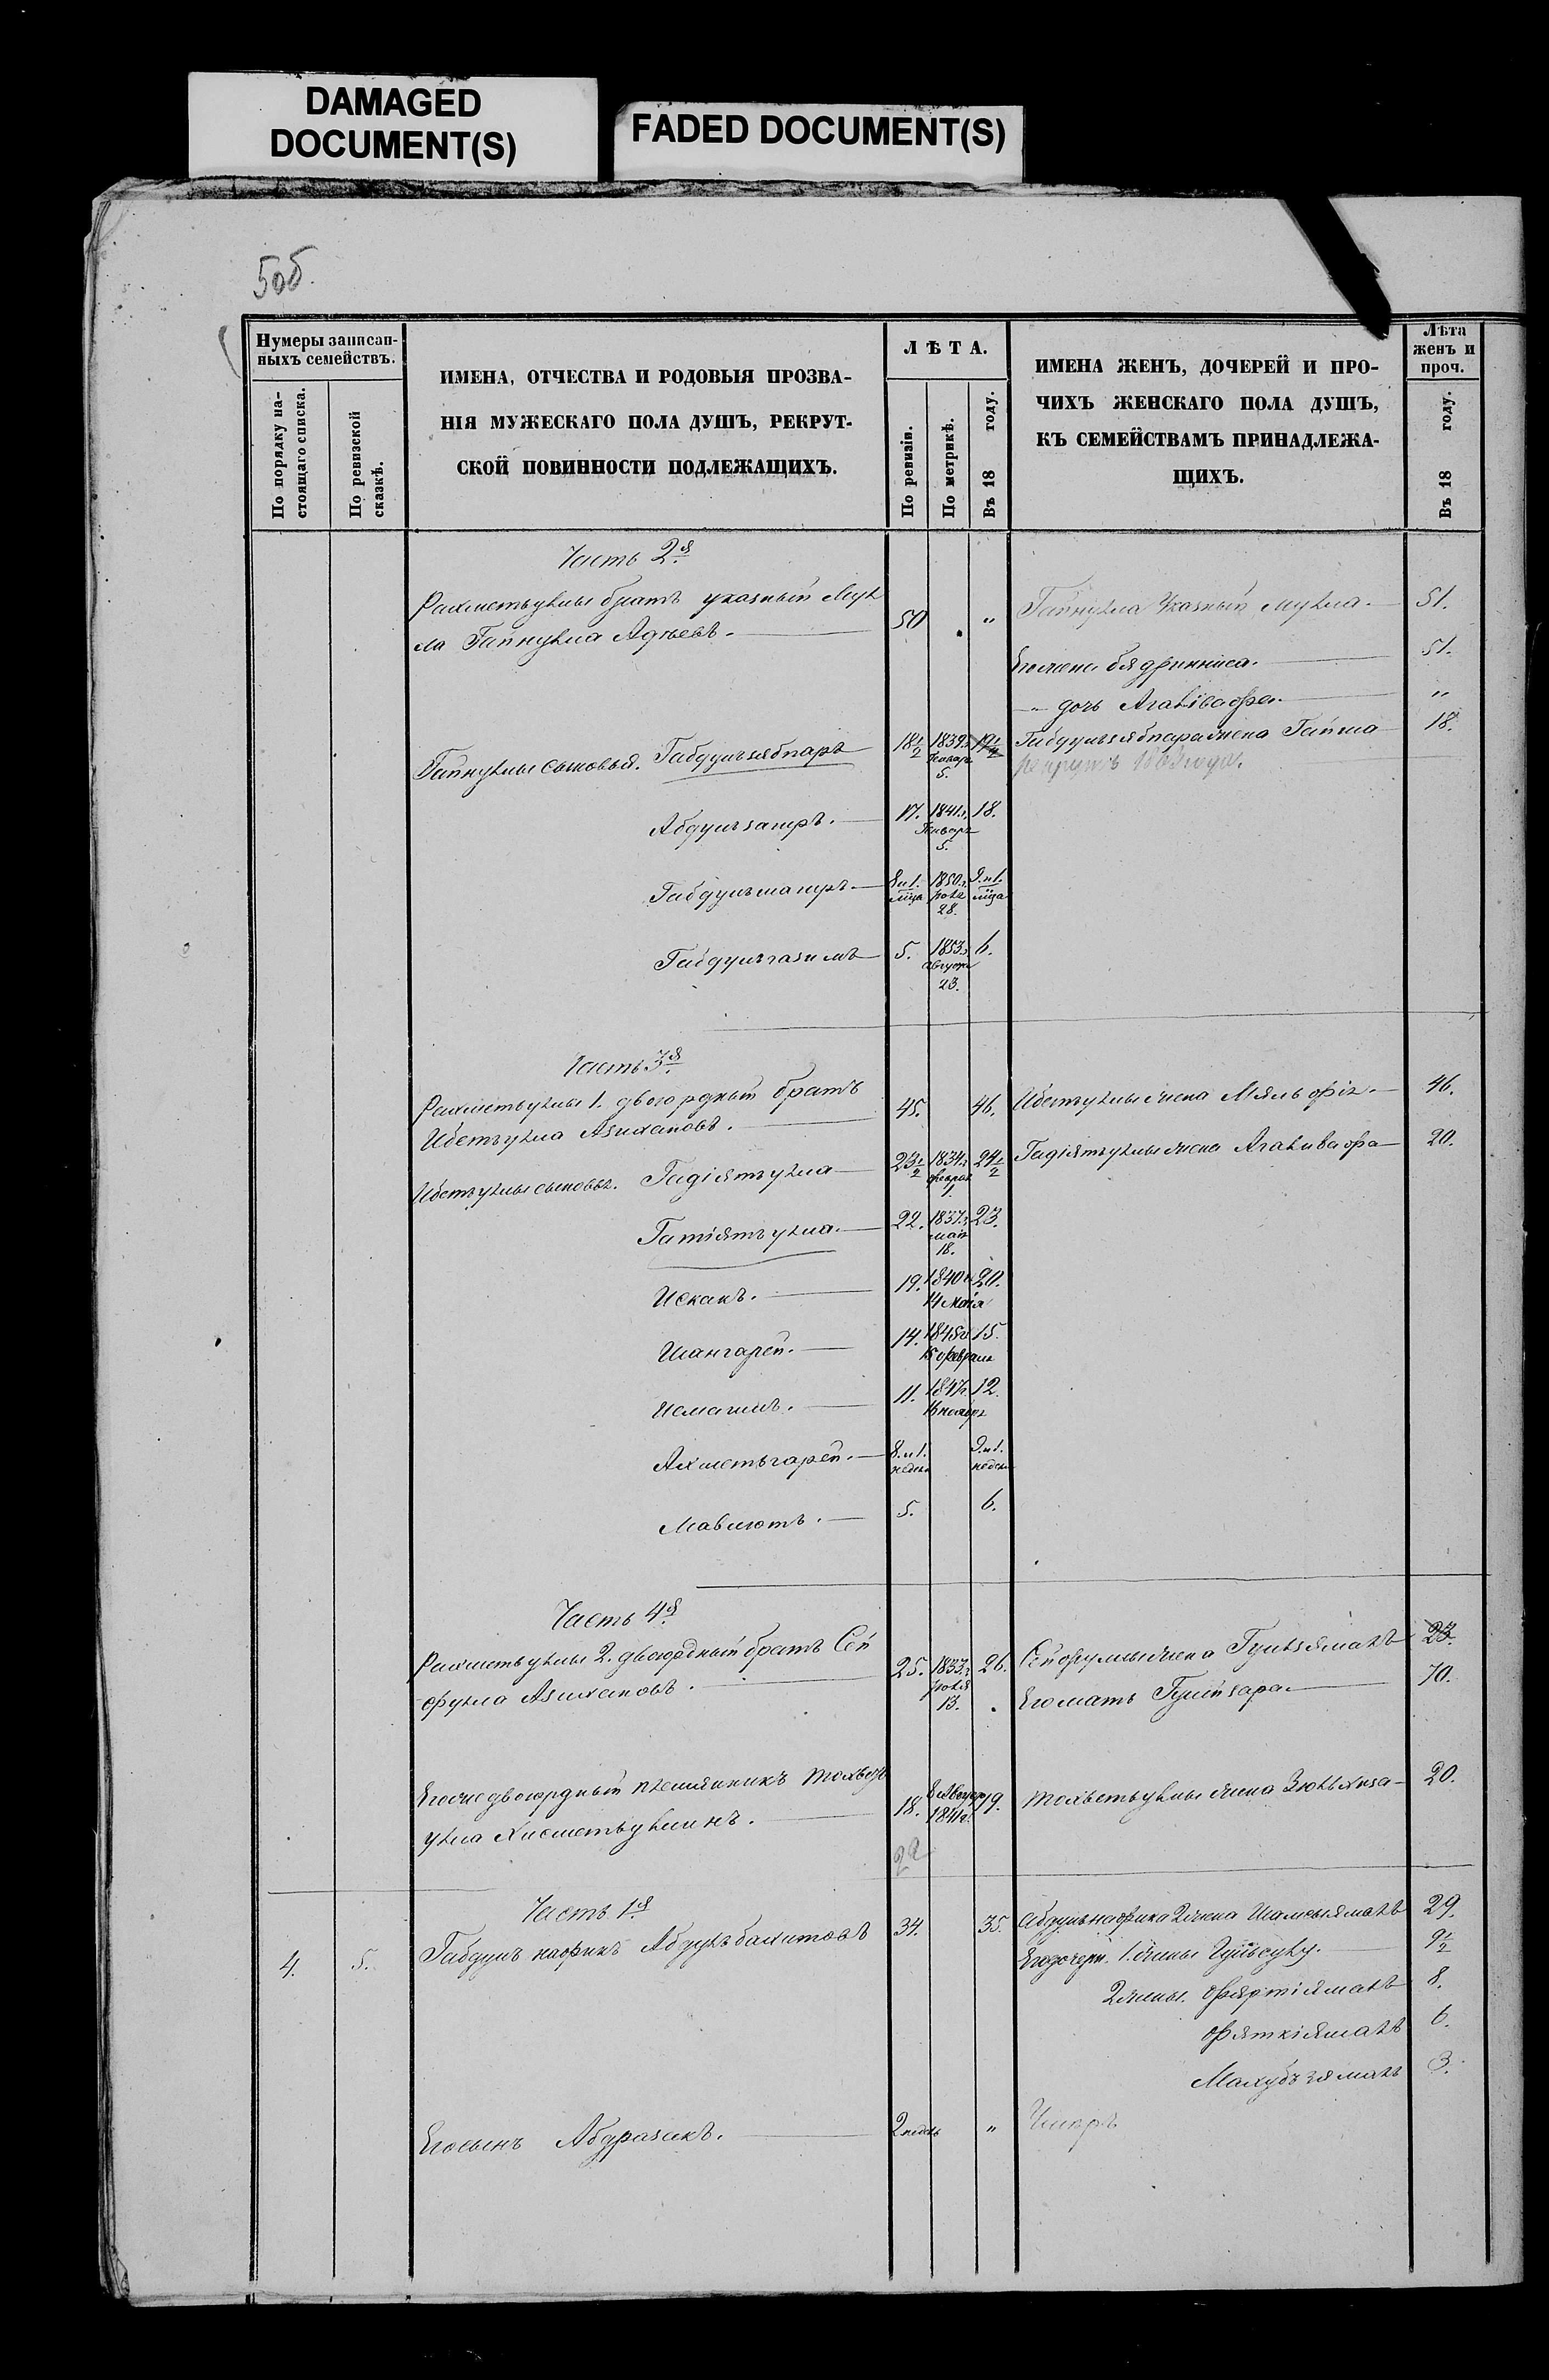 DAMAGED
DOCUMENT(S)
FADED DOCUMENT(S)
50б.
Нумеры записан-
ныхъ семействъ.
По порядку на-
стоящаго списка.
По ревизской
сказкѣ.
ИМЕНА, ОТЧЕСТВА И РОДОВЫЯ ПРОЗВА-
НІЯ МУЖЕСКАГО ПОЛА ДУШЪ, РЕКРУТ-
СКОЙ ПОВИННОСТИ ПОДЛЕЖАЩИХЪ.
ЛѢТА.
По ревизіи.
По метрикѣ.
Въ 18 году.
ИМЕНА ЖЕНЪ, ДОЧЕРЕЙ И ПРО-
ЧИХЪ ЖЕНСКАГО ПОЛА ДУШЪ,
КЪ СЕМЕЙСТВАМЪ ПРИНАДЛЕЖА-
ЩИХЪ.
Лѣта
женъ и
проч.
Въ 18 году.
Часть 2я
Рахметьуллы братъ указный Мул
ла Гайнулла Адѣевъ. 50 " Гайнулла Указный мулла. 51.
Его жена Бядринниса. 51.
" дочь Агалівафа. "
Гайнуллы сыновья. 18½ 1839г. Январ 5. 19½ жена Гайша 18.
рекрутъ
17. 1841г. Январ 5. 18.
8 и 1. мца 1850г. 28. 9. и 1. мца
Габдулъгазимъ 5. 1853г. августа 23. 6.
Часть 3я
Рахметьуллы 1. двоюрдный братъ
Ибетъулла Азихановъ. 45. 46. Ибетъуллы жена 46.
Ибетъуллы сыновья. Гадіятъулла 23½ 1834г. феврал 1. 24½ Гадіятъуллы жена Агаливафа 20.
Гатіятъулла. 22. 1837г. мая 18. 23.
Исхакъ. 19. 1840г. 14 мая 20.
Шангарей. 14. 1845г. 15 февраля 15.
Исмагилъ. 11. 1847г. 16 ноябр 12.
Ахметьгарей. 8. и 1. недел 9. и 1. недел
Мавлютъ. 5. 6.
Часть 4я
Рахметьуллы 2. двоюрдный братъ Сей
фулла Азихановъ. 25. 1833г. 13. 26. Сейфуллы жена 23.
Его мать 70.
Его же двоюрдный племянникъ
улла Хисметьуллинъ. 18. 8 Август 1841г. 19. жена 20.
22
Часть 1я
4. 5. Габдулъ нафикъ Абдулъбахитовъ 34. 35. Абдулънафика 2 жена Шамсыямалъ 29.
Его дочери. 1. жены Гулъсулу. 9½
2 жены. Фяртіямалъ 8.
Фяткіямалъ 6.
Махубъямалъ 3.
Его сынъ Абдразакъ. 2 недѣль " Умеръ